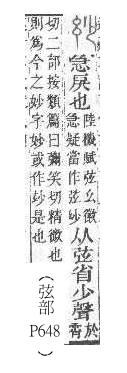 急戾也
陸機賦弦幺徽
急疑當作弦玅
从弦省少聲
於霄
切二部按類篇曰彌笑切精微也
則為今之妙字妙或作玅是也
（弦部
P648
）